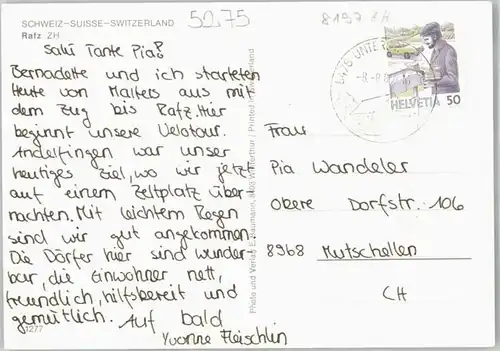 SCHWEIZ-SUISSE-SWITZERLAND
Rafz ZH
5075
8197 ZH
Salü Tante Pia!
Bernadette und ich starteten
Heute von Malters aus mit
dem Zug bis Rafz. Hier
beginnt unsere Velotour.
Andelfingen war unser
heutiges Ziel, wo wir jetzt
auf einem Zeltplatz über-
nachten. Mit leichtem Regen
sind wir gut angekommen.
Die Dörfer hier sind wunder-
bar, die Einwohner nett,
freundlich, hilfsbereit und
gemütlich. Auf bald
Yvonne Fleischlin
1277
Photo und Verlag: E. Baumann, Winterthur / Printed in Switzerland
8476 UNTER
-8.-8.8
HELVETIA 50
Frau
Pia Wandeler
Obere Dorfstr. 106
8968 Mutschellen
CH